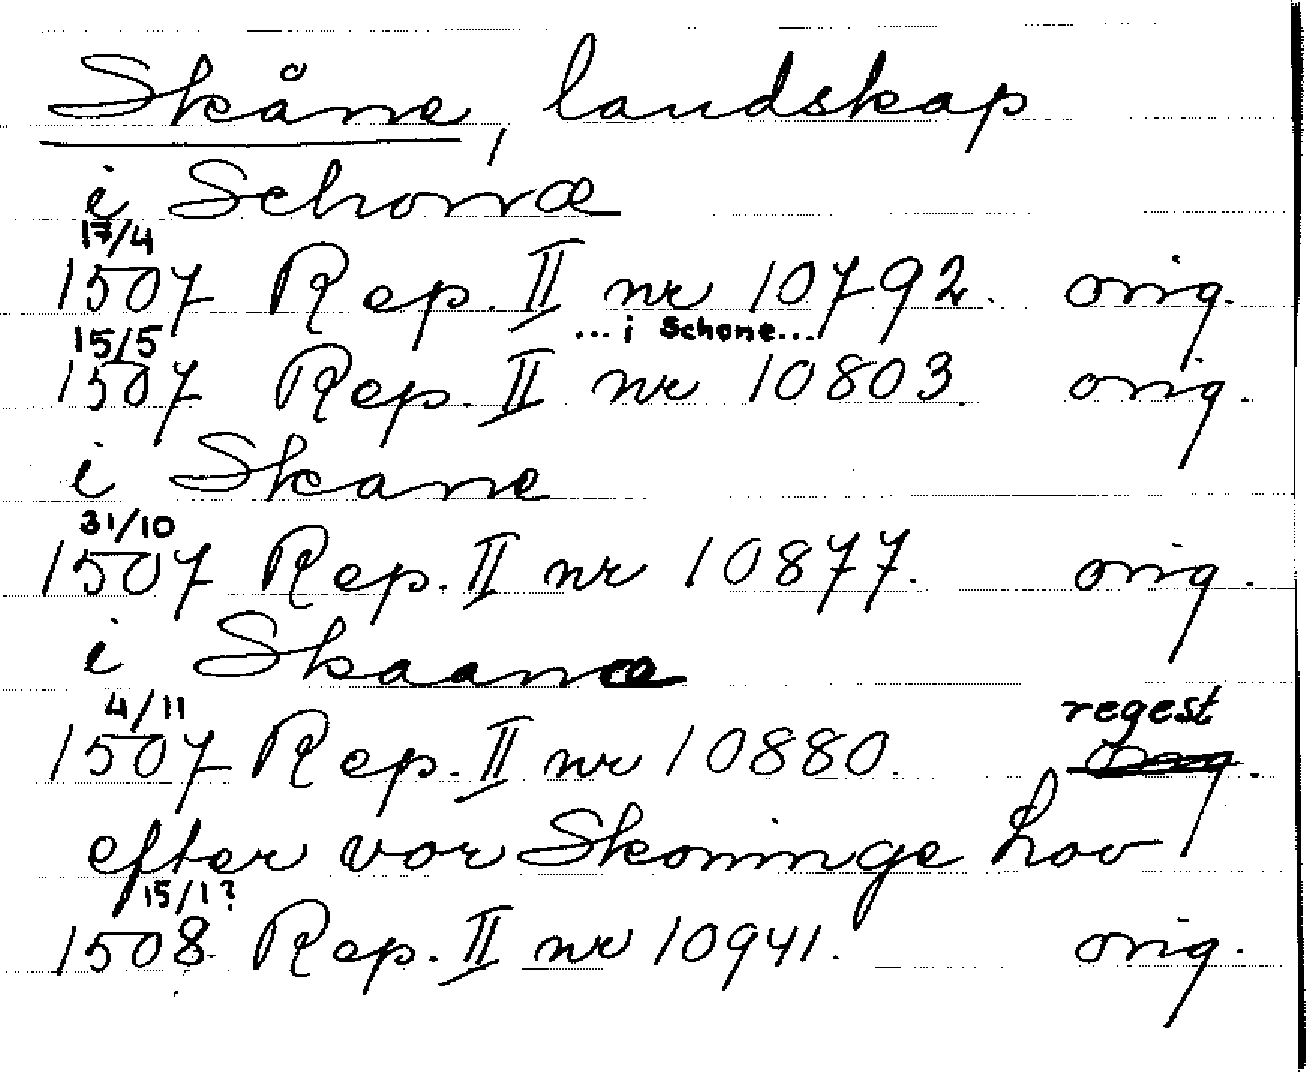 Skåne, landskap
i Schonæ
17/4
1507 Rep. II nr 10792. orig.
... i Schone...
15/5
1507 Rep. II nr 10803. orig.
i Skane
31/10
1507 Rep. II nr 10877. orig.
i Skaanæ
4/11 regest
1507 Rep. II nr 10880.
efter vor Skoninge hov
15/1?
1508 Rep. II nr 10941. orig.